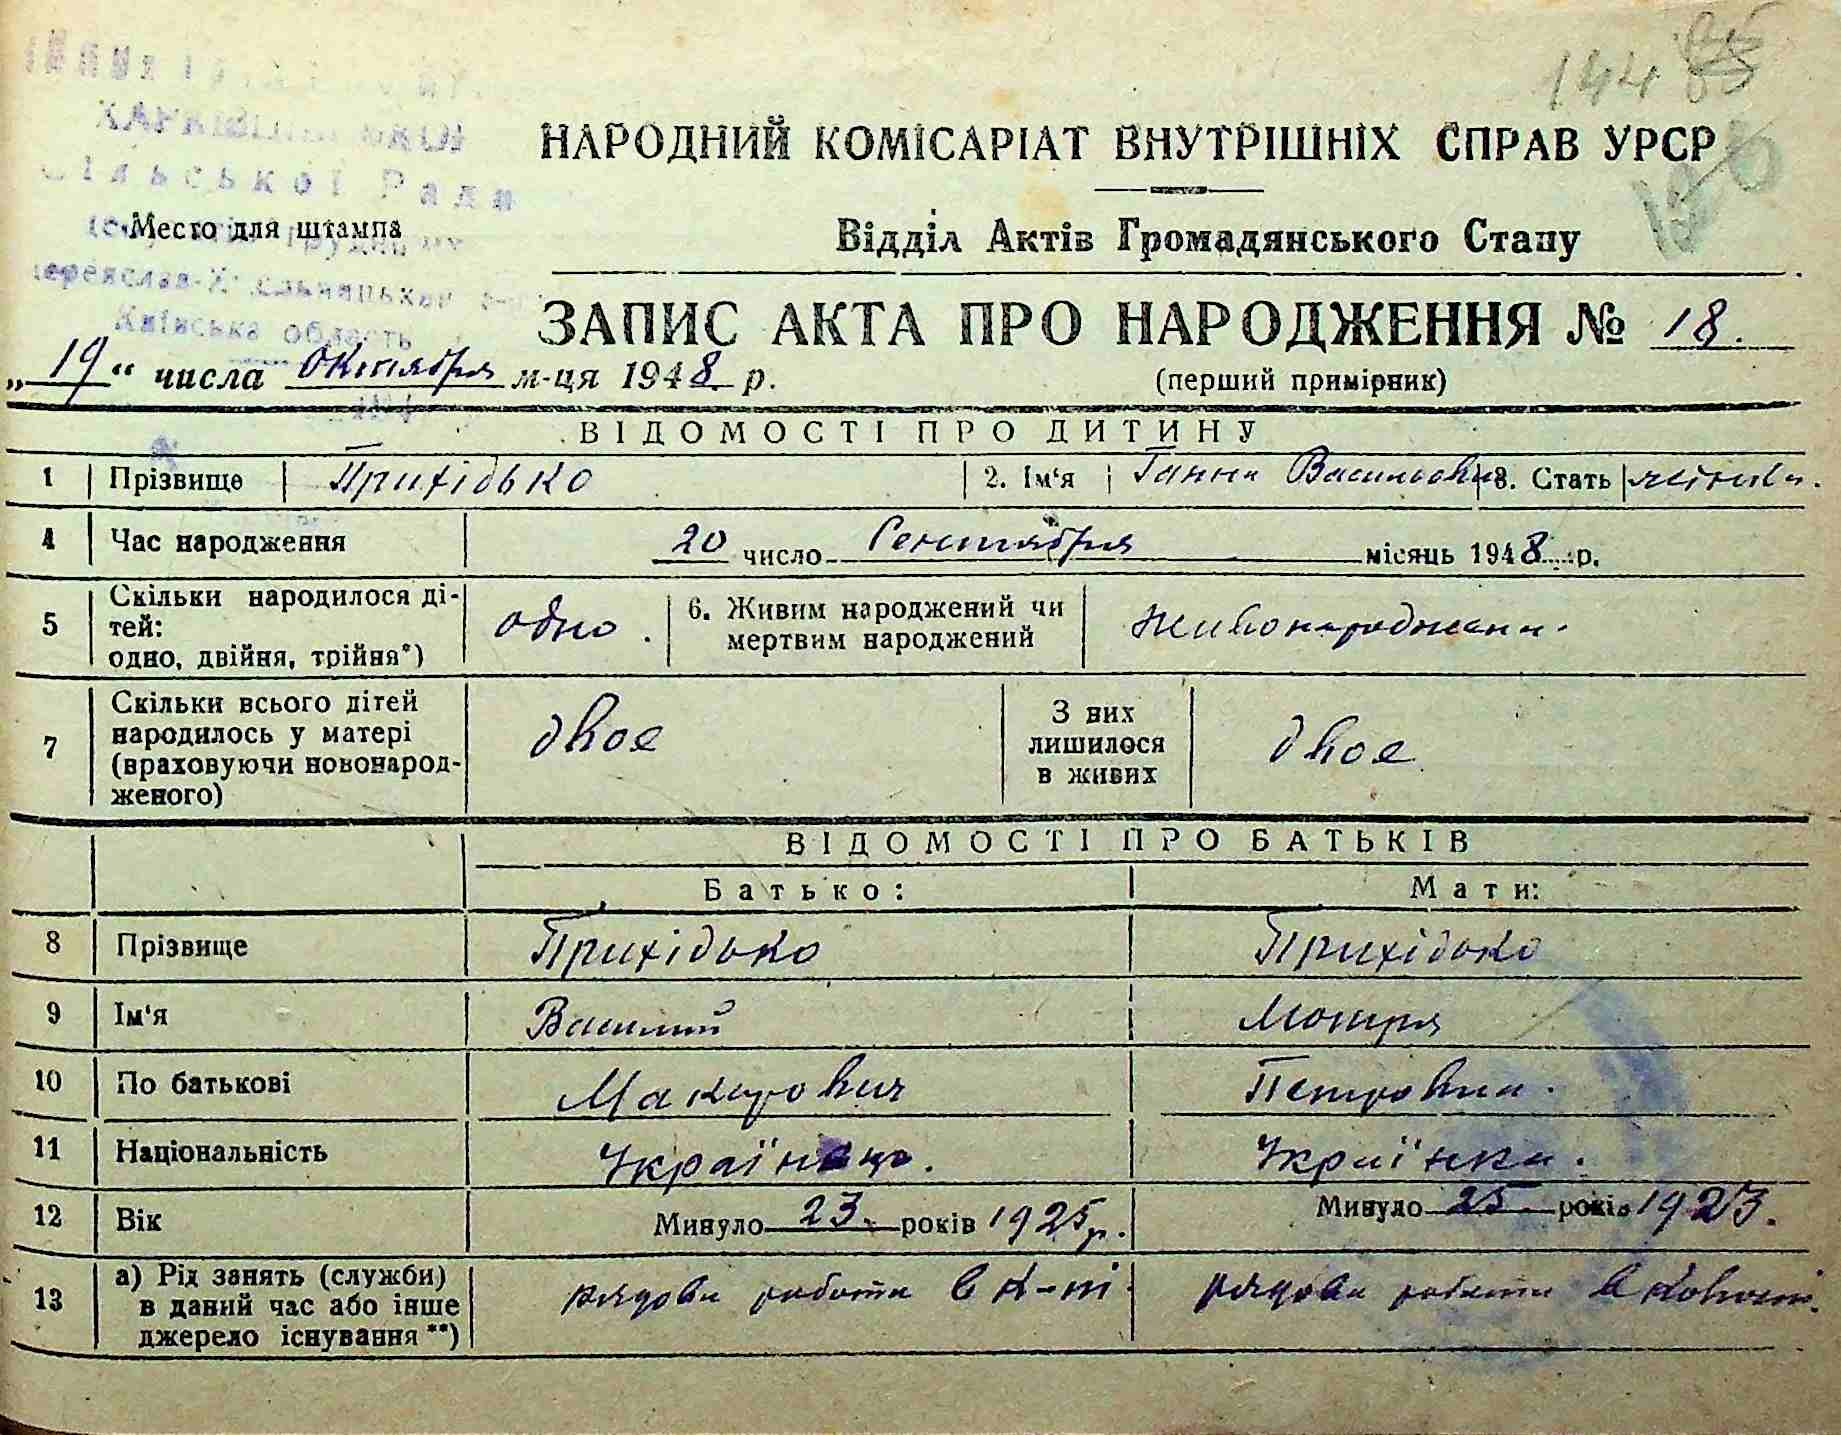 144 85
НАРОДНИЙ КОМІСАРІАТ ВНУТРІШНІХ СПРАВ УРСР
Сільської Ради
Место для штампа
Відділ Актів Громадянського Стану
Київська область
ЗАПИС АКТА ПРО НАРОДЖЕННЯ № 18.
„19“ числа октября м-ця 1948 р.
(перший примірник)
ВІДОМОСТІ ПРО ДИТИНУ
1 Прізвище Прихідько 2. Ім'я Ганна Васильовна 3. Стать
4 Час народження 20 число Сентября місяць 1948 р.
5 Скільки народилося ді-
тей:
одно, двійня, трійня*) одно. 6. Живим народжений чи
мертвим народжений живонароджена.
7 Скільки всього дітей
народилось у матері
(враховуючи новонарод-
женого) двое З них
лишилося
в живих двое
ВІДОМОСТІ ПРО БАТЬКІВ
Батько: Мати:
8 Прізвище Прихідько Прихідько
9 Ім'я Василий Мотря
10 По батькові Макарович Петровна.
11 Національність Українець. Українка.
12 Вік Минуло 23. років 1925р. Минуло 25. років 1923.
13 а) Рід занять (служби)
в даний час або інше
джерело існування**) рядова работа в к-ті. рядова работа в